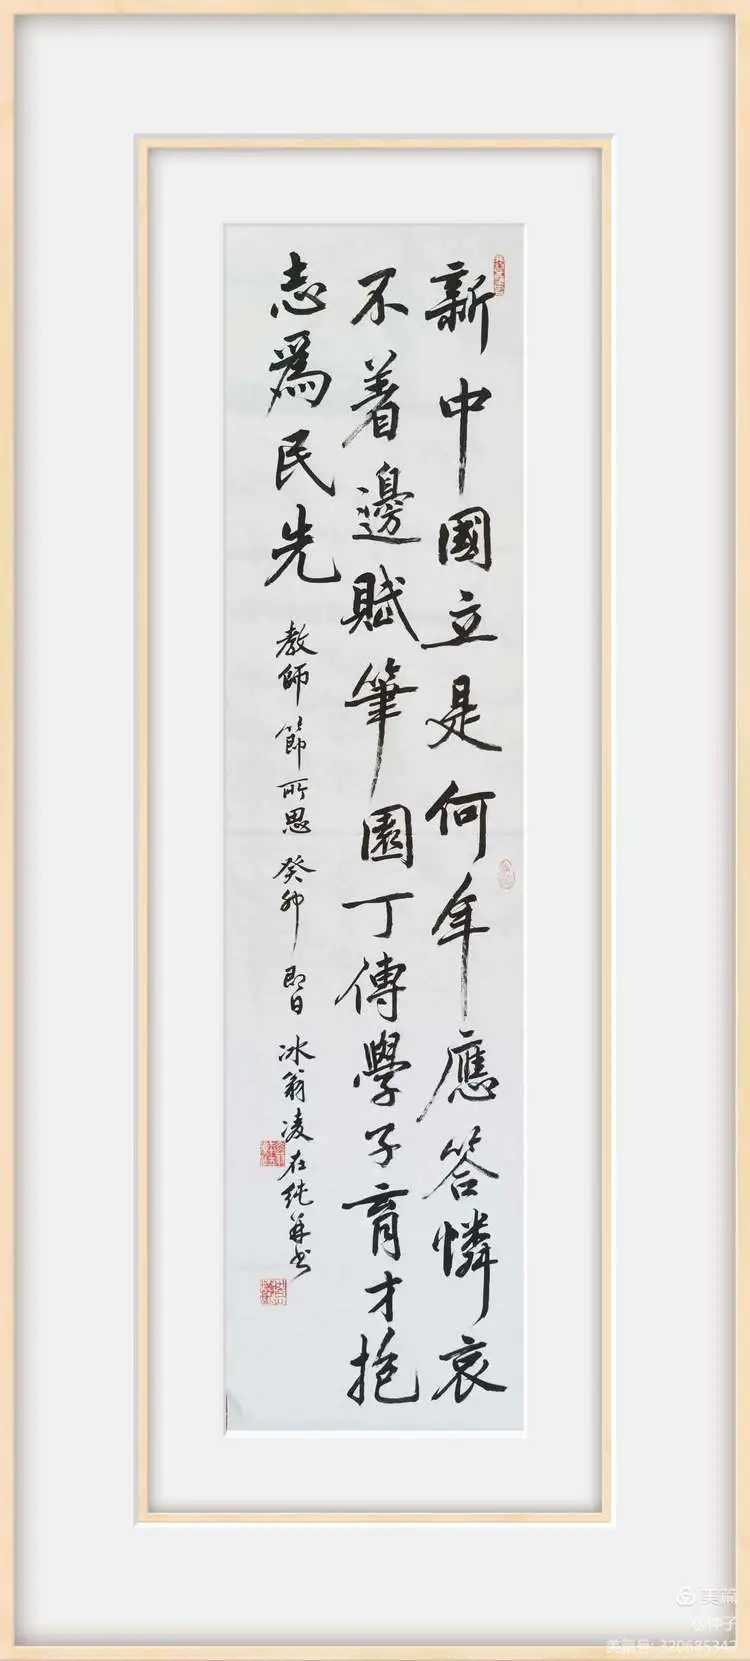 新中國立是何年應答憐哀
不着邊賦筆園丁傳學子育才抱
志為民先
教師節所思 癸卯 即日 冰翁凌在純並书
美篇
@仲子
美篇号: 320685342